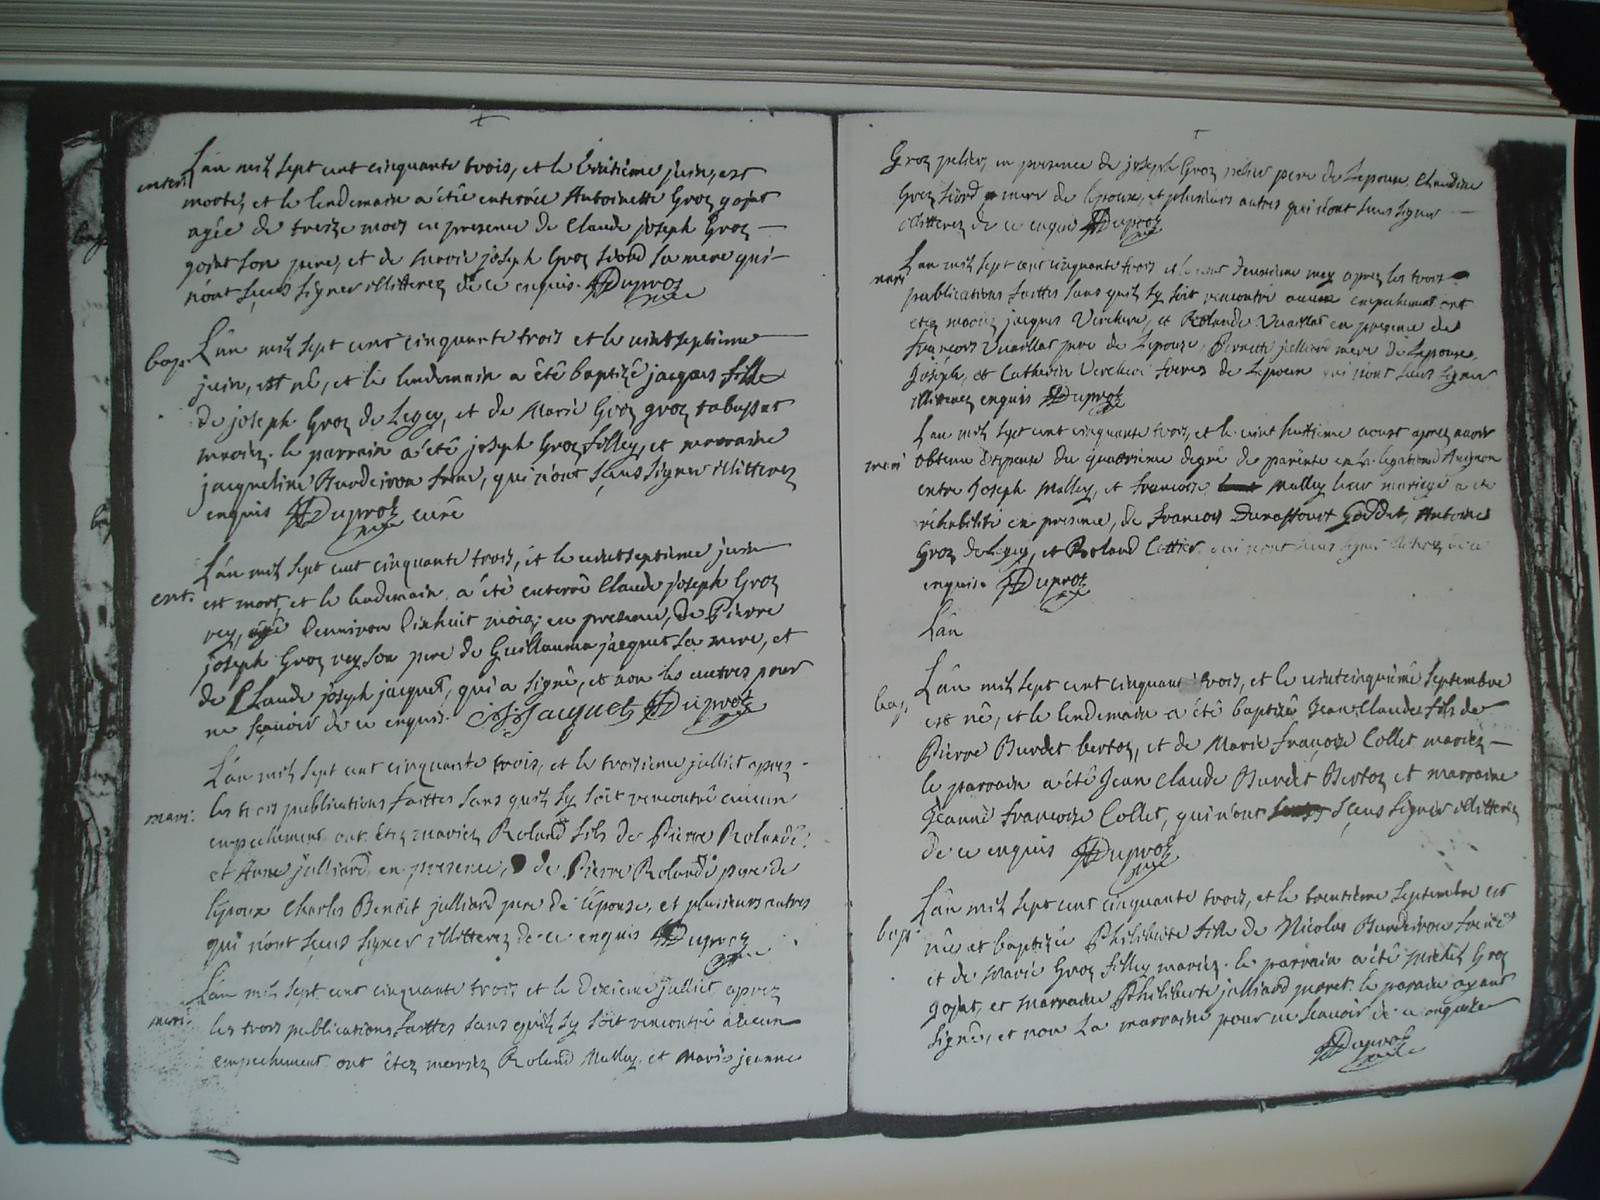 L'an mil sept cent cinquante trois, et le huitième juin, est
enter.
morte, et le lendemain a été enterrée Antoinette Groz gojat
agée de treize mois en presence de Claude joseph Groz
gojat son pere, et de marie joseph Groz sa mere qui
n'ont sçeus signer illitterez de ce enquis. Duproz
L'an mil sept cent cinquante trois et le vint septieme
bap.
juin, est né, et le lendemain a été baptizé jacques fille
de joseph Groz de Legy, et de Marie Groz groz tabussat
mariez. le parrain a été joseph Groz filley, et marraine
jacqueline Burdeiron, qui n'ont sçeus signer illitterez
enquis Duproz curé
L'an mil sept cent cinquante trois, et le vint septieme juin
ent.
est mort, et le lendemain a été enterré Claude joseph Groz
rey, agé denviron dixhuit mois; en presence, de Pierre
joseph Groz rey son pere de Guillauma jacquet sa mere, et
de Claude joseph jacquet, qui a signé, et non les autres pour
ne sçavoir de ce enquis. Jacquet Duproz
L'an mil sept cent cinquante trois, et le troisieme julliet aprez
les trois publications faittes sans quil sy soit rencontré aucun
mari.
empechement ont étez mariez Roland fils de Pierre Rolandé
et Anne julliard en presence, de Pierre Rolandé pere de
lépoux Charles Benoit julliard pere de l'épouse, et plusieurs autres
qui n'ont sçeus signer illitterez de ce enquis Duproz
L'an mil sept cent cinquante trois et le dixieme julliet aprez
mari.
les trois publications faittes sans quil sy soit rencontré aucun
empechement ont étez mariez Roland Malley et Marie jeanne
Groz pelier, en presence de joseph Groz pelier pere de Lepouse, Claudine
Groz mere de lepoux, et plusieurs autres qui n'ont sceus signer
illitterez de ce enquis Duproz
L'an mil sept cent cinquante trois et le deuxieme may aprez les trois
mari
publications faittes sans quil sy soit rencontré aucun empechement ont
etez mariez jacques Verchere, et Rolande Vuaillat en presence de
francois Vuaillat pere de Lepouse, Pernette julliard mere de Lepouse,
Joseph, et Catherin Verchere freres de Lepoux qui n'ont sceus signer
illitterez enquis Duproz
L'an mil sept cent cinquante trois, et le vint huitieme aoust aprez avoir
mari
obtenu dispense du quatrieme degré de parenté en la legation d'Avignon
entre Joseph Malley, et francoise Malley leur mariage a eté
rehabilité en presence, de francois Goddet, Antoine
Groz de Legy, et Roland Cottier qui n'ont sceus signer
enquis. Duproz
L'an
L'an mil sept cent cinquante trois, et le vintcinquieme septembre
bap.
est né, et le lendemain a été baptizé Jean Claude fils de
Pierre Burdet bertoz, et de Marie françoise Collet mariez
le parrain a été Jean Claude Burdet Bertoz et marraine
Jeanne françoise Collet, qui n'ont sçeus signer illitterez
de ce enquis Duproz
L'an mil sept cent cinquante trois, et le trentieme septembre est
bap.
née et baptizée Philiberte fille de Nicolas Burdeiron
et de Marie Groz filley mariez. le parrain a été Michel Groz
gojat, et marraine Philiberte julliard moret. le parrain ayant
signé, et non la marraine pour ne scavoir de ce enquise
Duproz